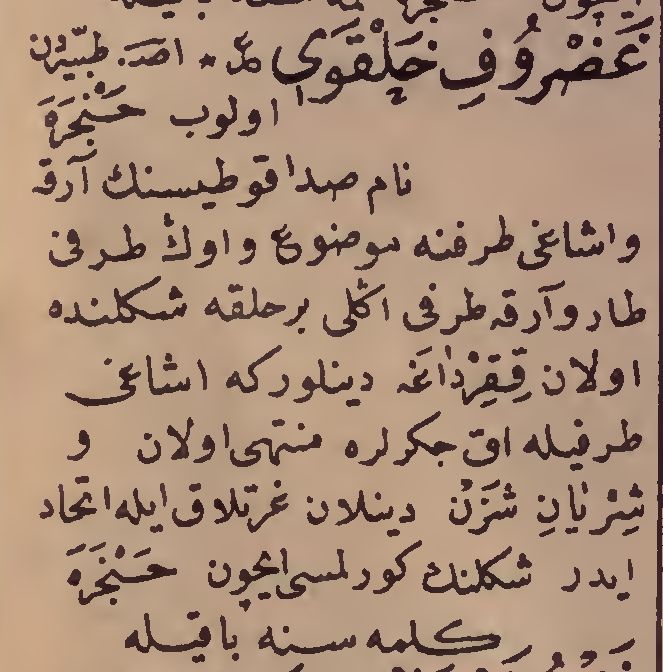 غَضْرُوفِ حَلْقَوِی عل * اصد. طبیّدن
اولوب حَنْجَرَهَ
نام صدا قوطیسنك آرقه
واشاغی طرفنه موضوع واوڭ طرفی
طار وآرقه طرفی اڭلی برحلقه شكلنده
اولان قِقِرْدَاغَه دینلوركه اشاغی
طرفیله اق جكرلره منتهی اولان و
شِرْیَانِ شَزَنْ دینلان غرتلاق ایله اتحاد
ایدر شكلنك كورلمسی ایچون حَنْجَرَهَ
كلمه سنه باقیله